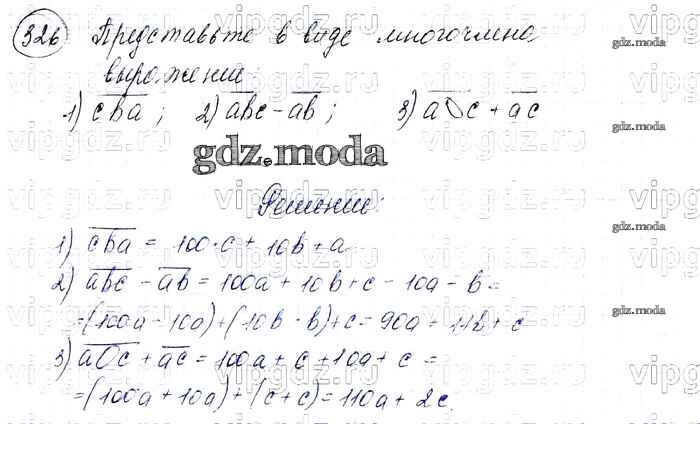 326 Представьте в виде многочлена
выражение:
1) cba; 2) abc - ab; 3) a0c + ac
gdz.moda
Решение:
1) cba = 100·c + 10b + a
2) abc - ab = 100a + 10b + c - 10a - b =
=(100a - 10a) + (10b - b) + c = 90a + 11b + c
3) a0c + ac = 100a + c + 10a + c =
=(100a + 10a) + (c + c) = 110a + 2c.